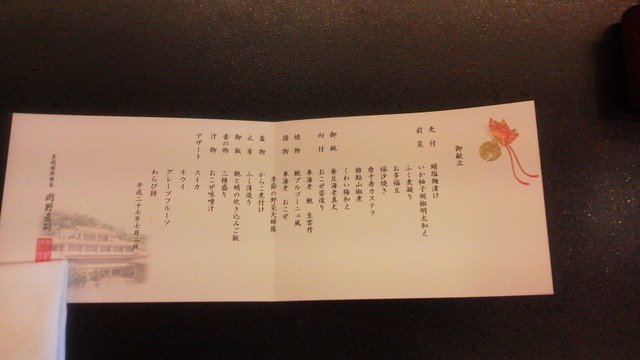 御献立
先付 蛸塩麹漬け
前菜 いか柚子胡椒明太和え
ふぐ煮凝り
お多福豆
福沙焼き
唐千寿カステラ
稚鮎山椒煮
くわい梅和え
御椀 蚕豆海老真丈
向付 おこぜ姿造り
車海老 鮑 生雲丹
焼物 鮑ブルゴーニュ風
揚物 車海老 おこぜ
季節の野菜天婦羅
蓋物 からこ煮付け
止肴 ふぐ薄造り
御飯 鮑と蛸の炊き込みご飯
香の物 三種盛り
汁物 おこぜ味噌汁
デザート スイカ
キウイ
グレープフルーツ
わらび餅
平成二十七年七月二日